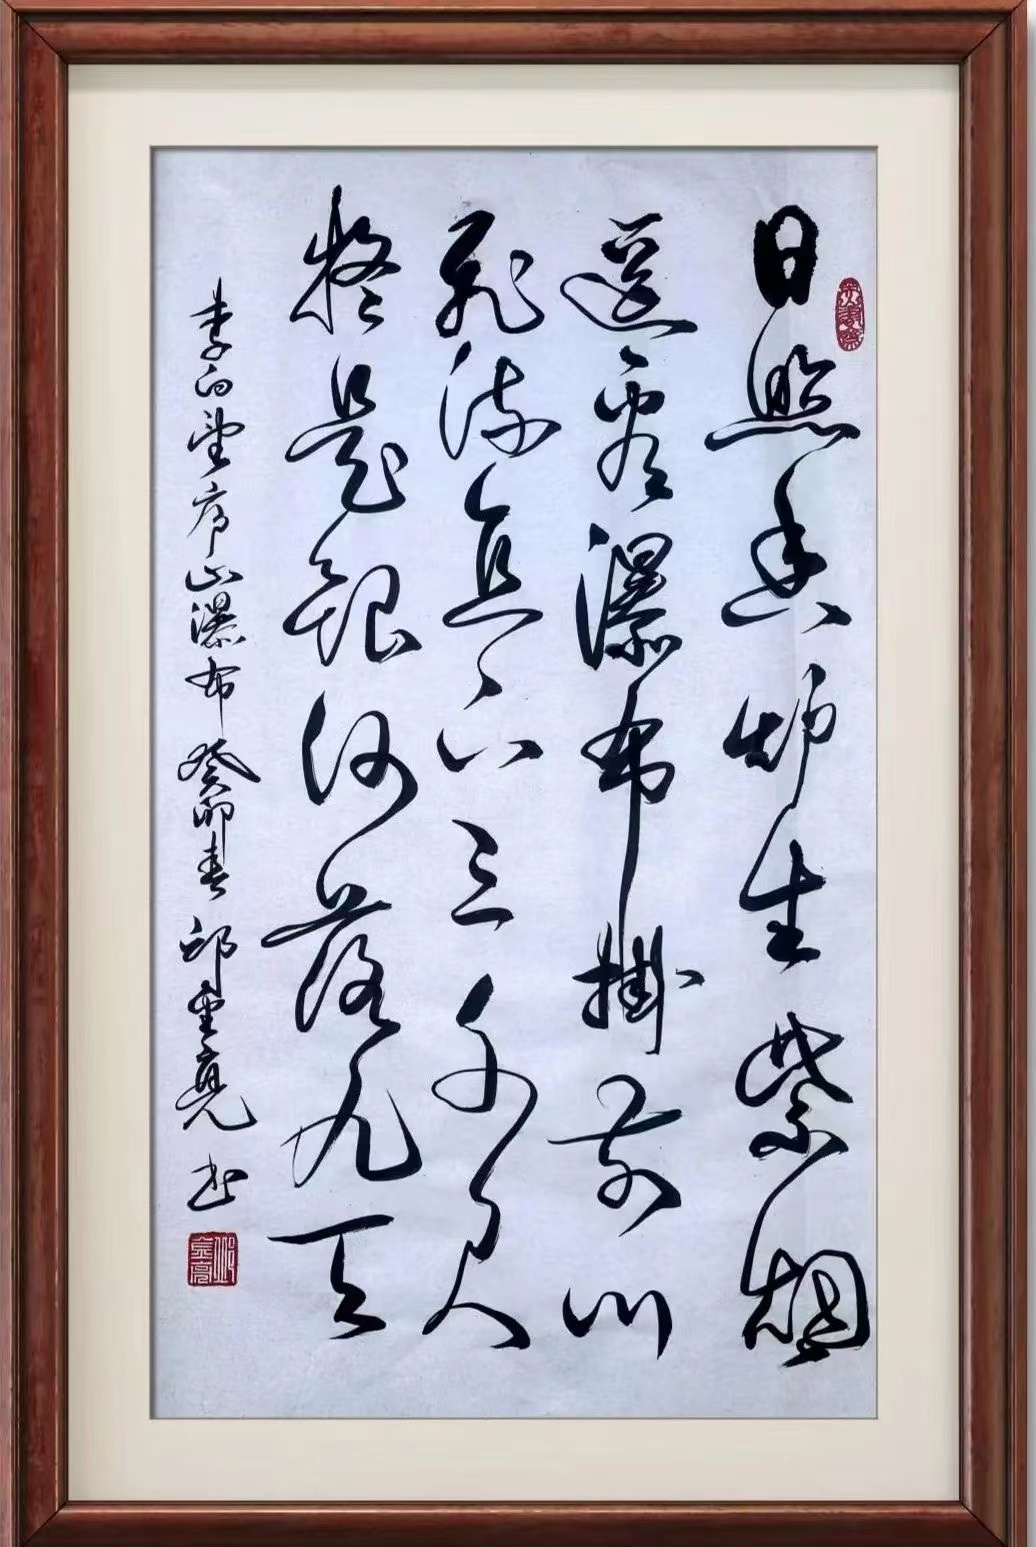 日照香炉生紫烟
遥看瀑布掛前川
飛流直下三千尺
疑是银河落九天
李白望庐山瀑布癸卯春邱重亮书